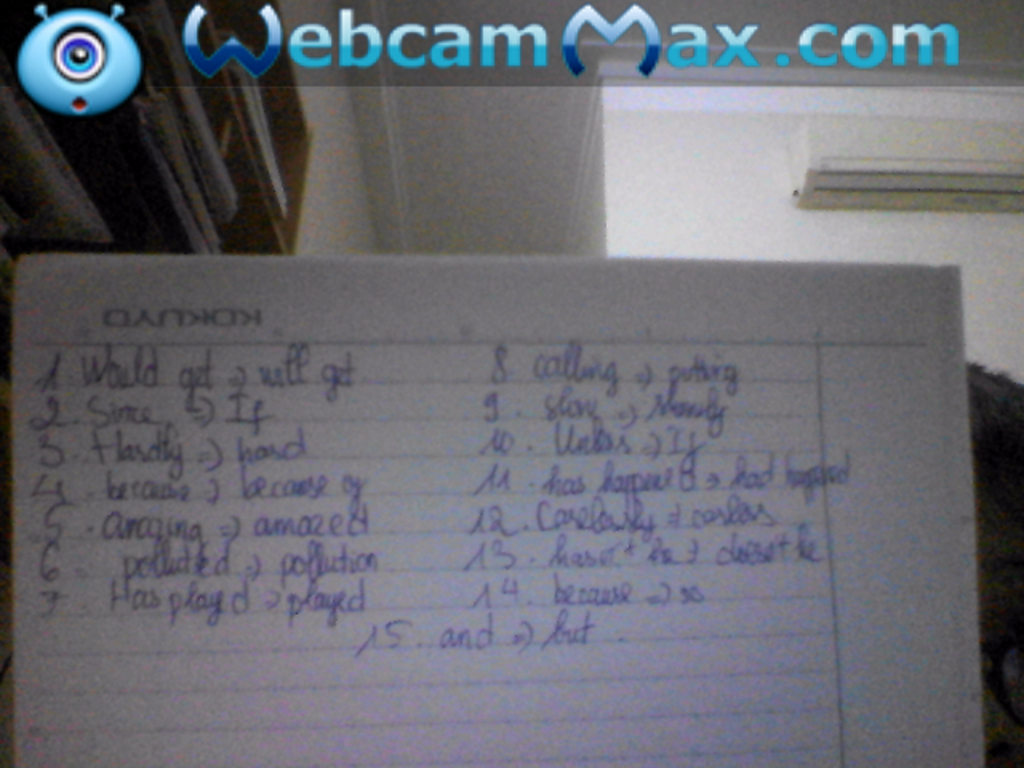 WebcamMax.com
KOKUYO
1. Would get => will get
2. Since => If
3. Hardly => hard
4. because => because of
5. amazing => amazed
6. polluted => pollution
7. Has played => played
8. calling => putting
9. slow => slowly
10. Unless => If
11. has happened => had happened
12. Carelessly => careless
13. hasn't he => doesn't he
14. because => so
15. and => but